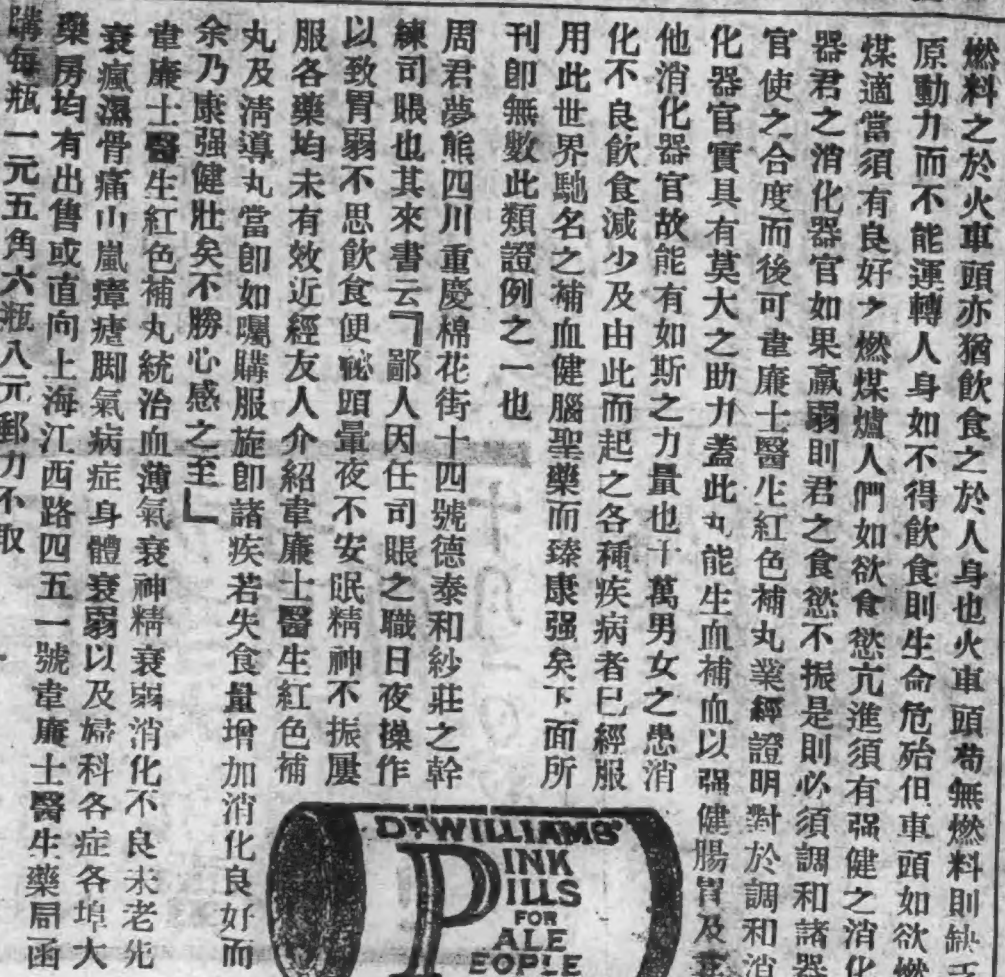 燃料之於火車頭亦猶飲食之於人身也火車頭苟無燃料則缺乏
原動力而不能運轉人身如不得飲食則生命危殆但車頭如欲燃
煤適當須有良好之燃煤爐人們如欲食慾亢進須有强健之消化
器君之消化器官如果羸弱則君之食慾不振是則必須調和諸器
官使之合度而後可韋廉士醫生紅色補丸業經證明對於調和消
化器官實具有莫大之助力蓋此丸能生血補血以强健腸胃及其
他消化器官故能有如斯之力量也千萬男女之患消
化不良飲食減少及由此而起之各種疾病者已經服
用此世界馳名之補血健腦聖藥而臻康强矣下面所
刊卽無數此類證例之一也
周君夢熊四川重慶棉花街十四號德泰和紗莊之幹
練司賬也其來書云「鄙人因任司賬之職日夜操作
以致胃弱不思飲食便祕頭暈夜不安眠精神不振屢
服各藥均未有效近經友人介紹韋廉士醫生紅色補
丸及淸導丸當卽如囑購服旋卽諸疾若失食量增加消化良好而
余乃康强健壯矣不勝心感之至」
韋廉士醫生紅色補丸統治血薄氣衰神精衰弱消化不良未老先
衰瘋濕骨痛山嵐瘴瘧脚氣病症身體衰弱以及婦科各症各埠大
藥房均有出售或直向上海江西路四五一號韋廉士醫生藥局函
購每瓶一元五角六瓶八元郵力不取
DR WILLIAMS'
PINK
PILLS
FOR
PALE
PEOPLE